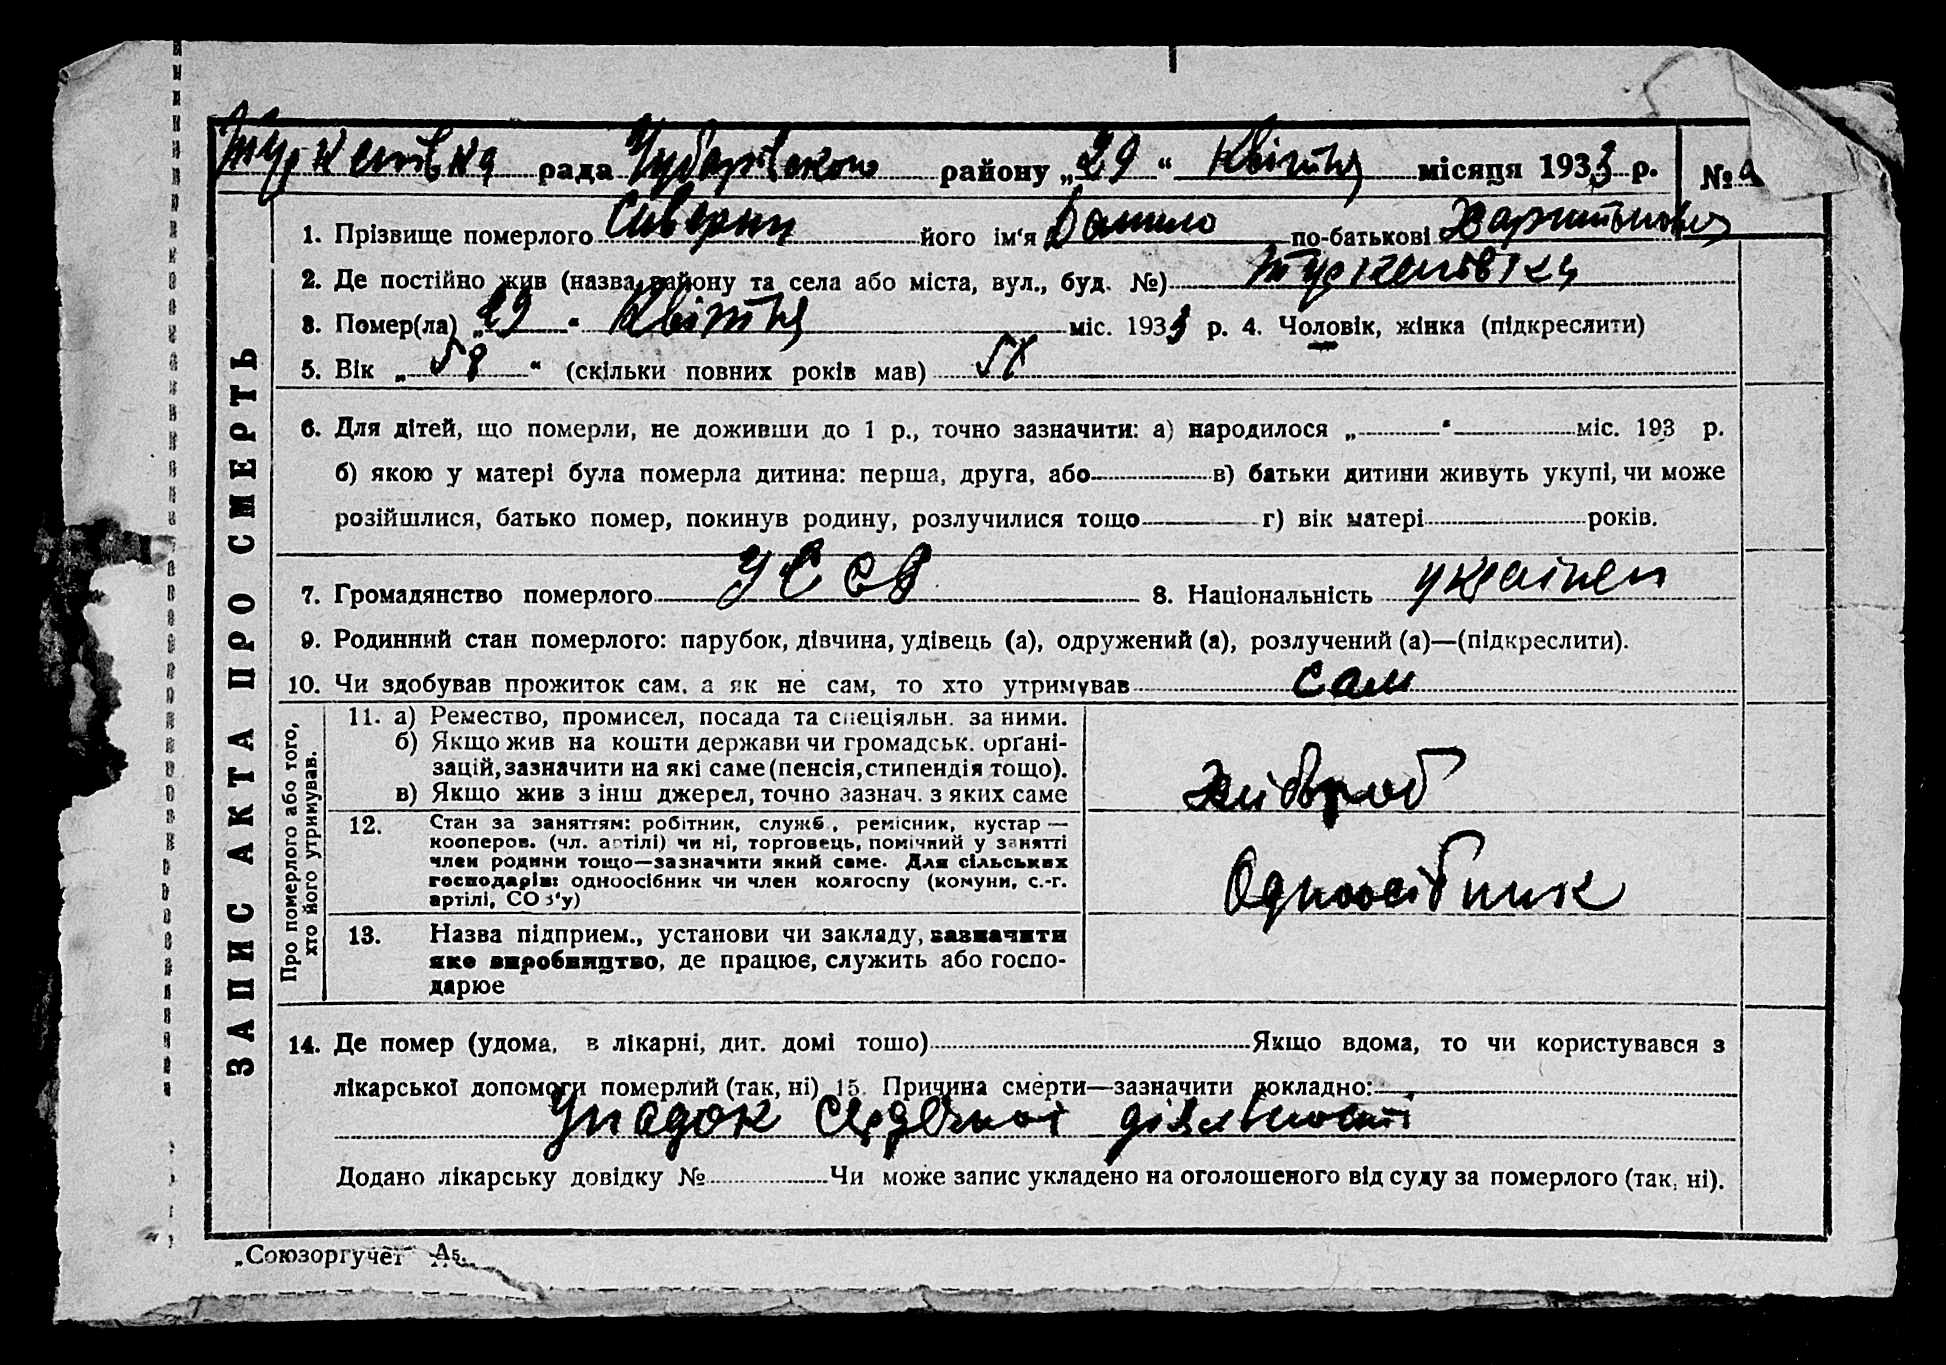 Туркенівка рада Чубарівського району „29“ Квітня місяця 1933 р. №
1. Прізвище померлого Сиверин його ім'я Данило по-батькові Харитонович
2. Де постійно жив (назва району та села або міста, вул., буд. №) Туркенівка
3. Помер(ла) „29“ Квітня міс. 1933 р. 4. Чоловік, жінка (підкреслити)
5. Вік „58“ (скільки повних років мав) 58
6. Для дітей, що померли, не доживши до 1 р., точно зазначити: а) народилося „ “ міс. 193 р.
б) якою у матері була померла дитина: перша, друга, або в) батьки дитини живуть укупі, чи може
розійшлися, батько помер, покинув родину, розлучилися тощо г) вік матері років.
7. Громадянство померлого УССР 8. Національність українец
9. Родинний стан померлого: парубок, дівчина, удівець (а), одружений (а), розлучений (а)—(підкреслити).
10. Чи здобував прожиток сам, а як не сам, то хто утримував сам
ЗАПИС АКТА ПРО СМЕРТЬ
Про померлого або того,
хто його утримував.
11. а) Ремество, промисел, посада та спеціяльн. за ними.
б) Якщо жив на кошти держави чи громадськ. органі-
зацій, зазначити на які саме (пенсія, стипендія тощо).
в) Якщо жив з інш джерел, точно зазнач. з яких саме
Хлібороб
12. Стан за заняттям: робітник, служб., ремісник, кустар—
кооперов. (чл. артілі) чи ні, торговець, помічний у занятті
член родини тощо—зазначити який саме. Для сільських
господарів: одноосібник чи член колгоспу (комуни, с.-г.
артілі, СОЗ'у)
Одноосібник
13. Назва підприєм., установи чи закладу, зазначити
яке виробництво, де працює, служить або госпо-
дарює
14. Де помер (удома, в лікарні, дит. домі тощо) Якщо вдома, то чи користувався з
лікарської допомоги померлий (так, ні) 15. Причина смерти—зазначити докладно:
Упадок сердечної діяльності
Додано лікарську довідку № Чи може запис укладено на оголошеного від суду за померлого (так, ні).
„Союзоргучет“ А5.